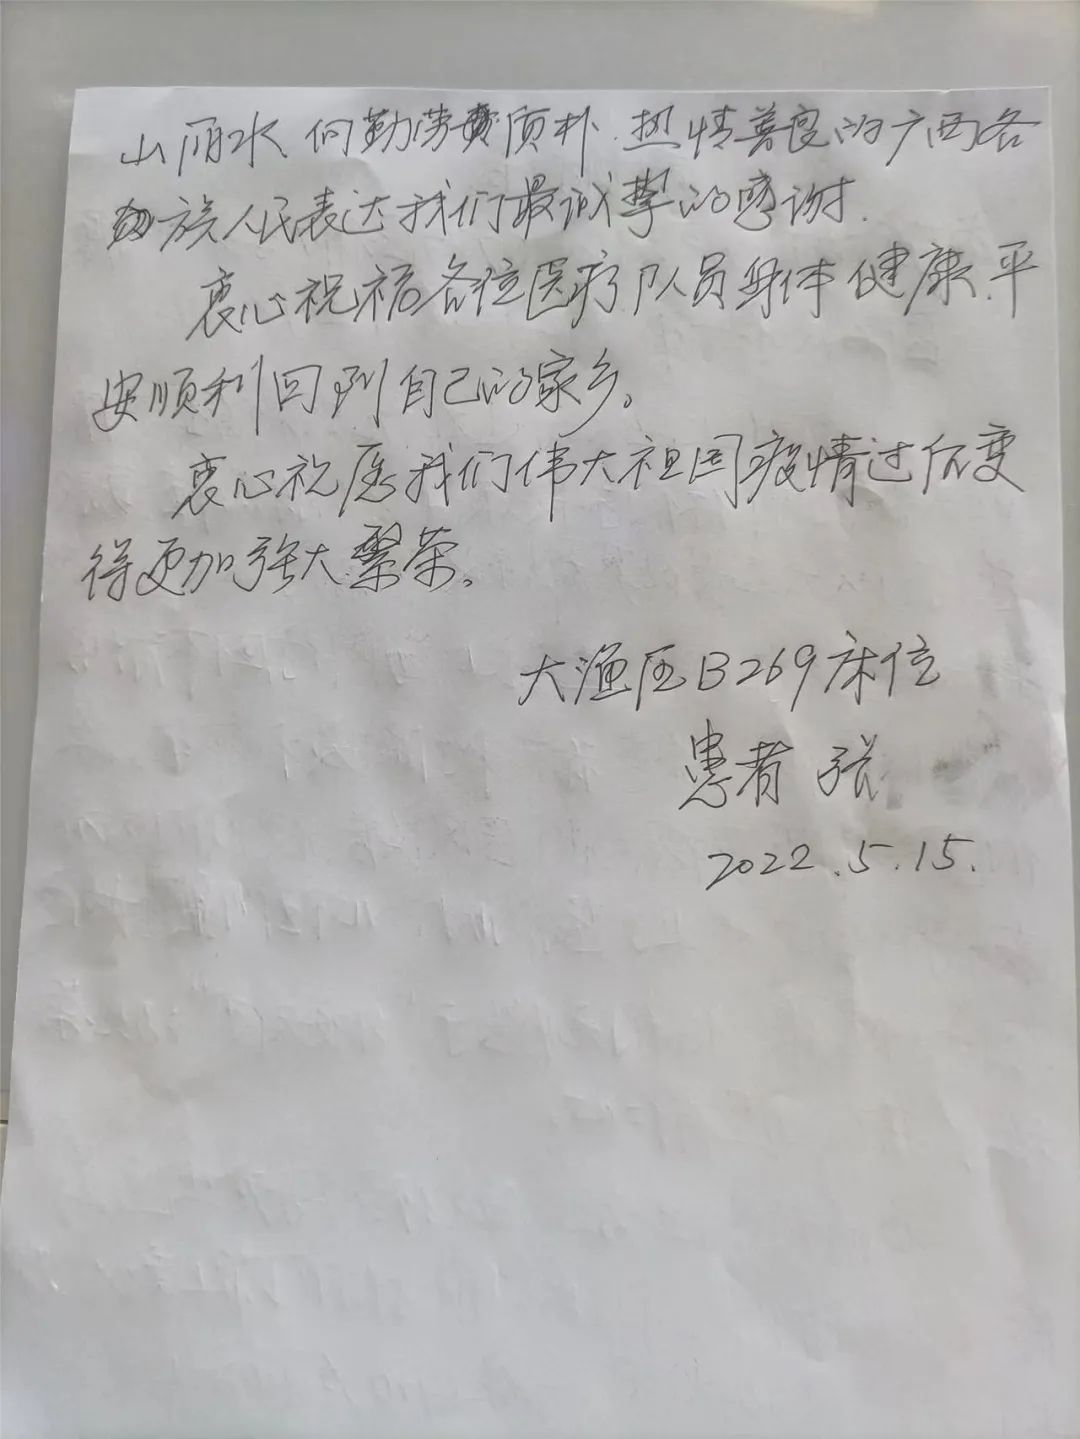 山丽水、向勤劳质朴、热情善良的广西各
族人民表达我们最诚挚的感谢.
衷心祝福各位医疗队员身体健康、平
安顺利回到自己的家乡。
衷心祝愿我们伟大祖国疫情过后变
得更加强大繁荣。
大渔区B269床位
患者 张
2022.5.15.